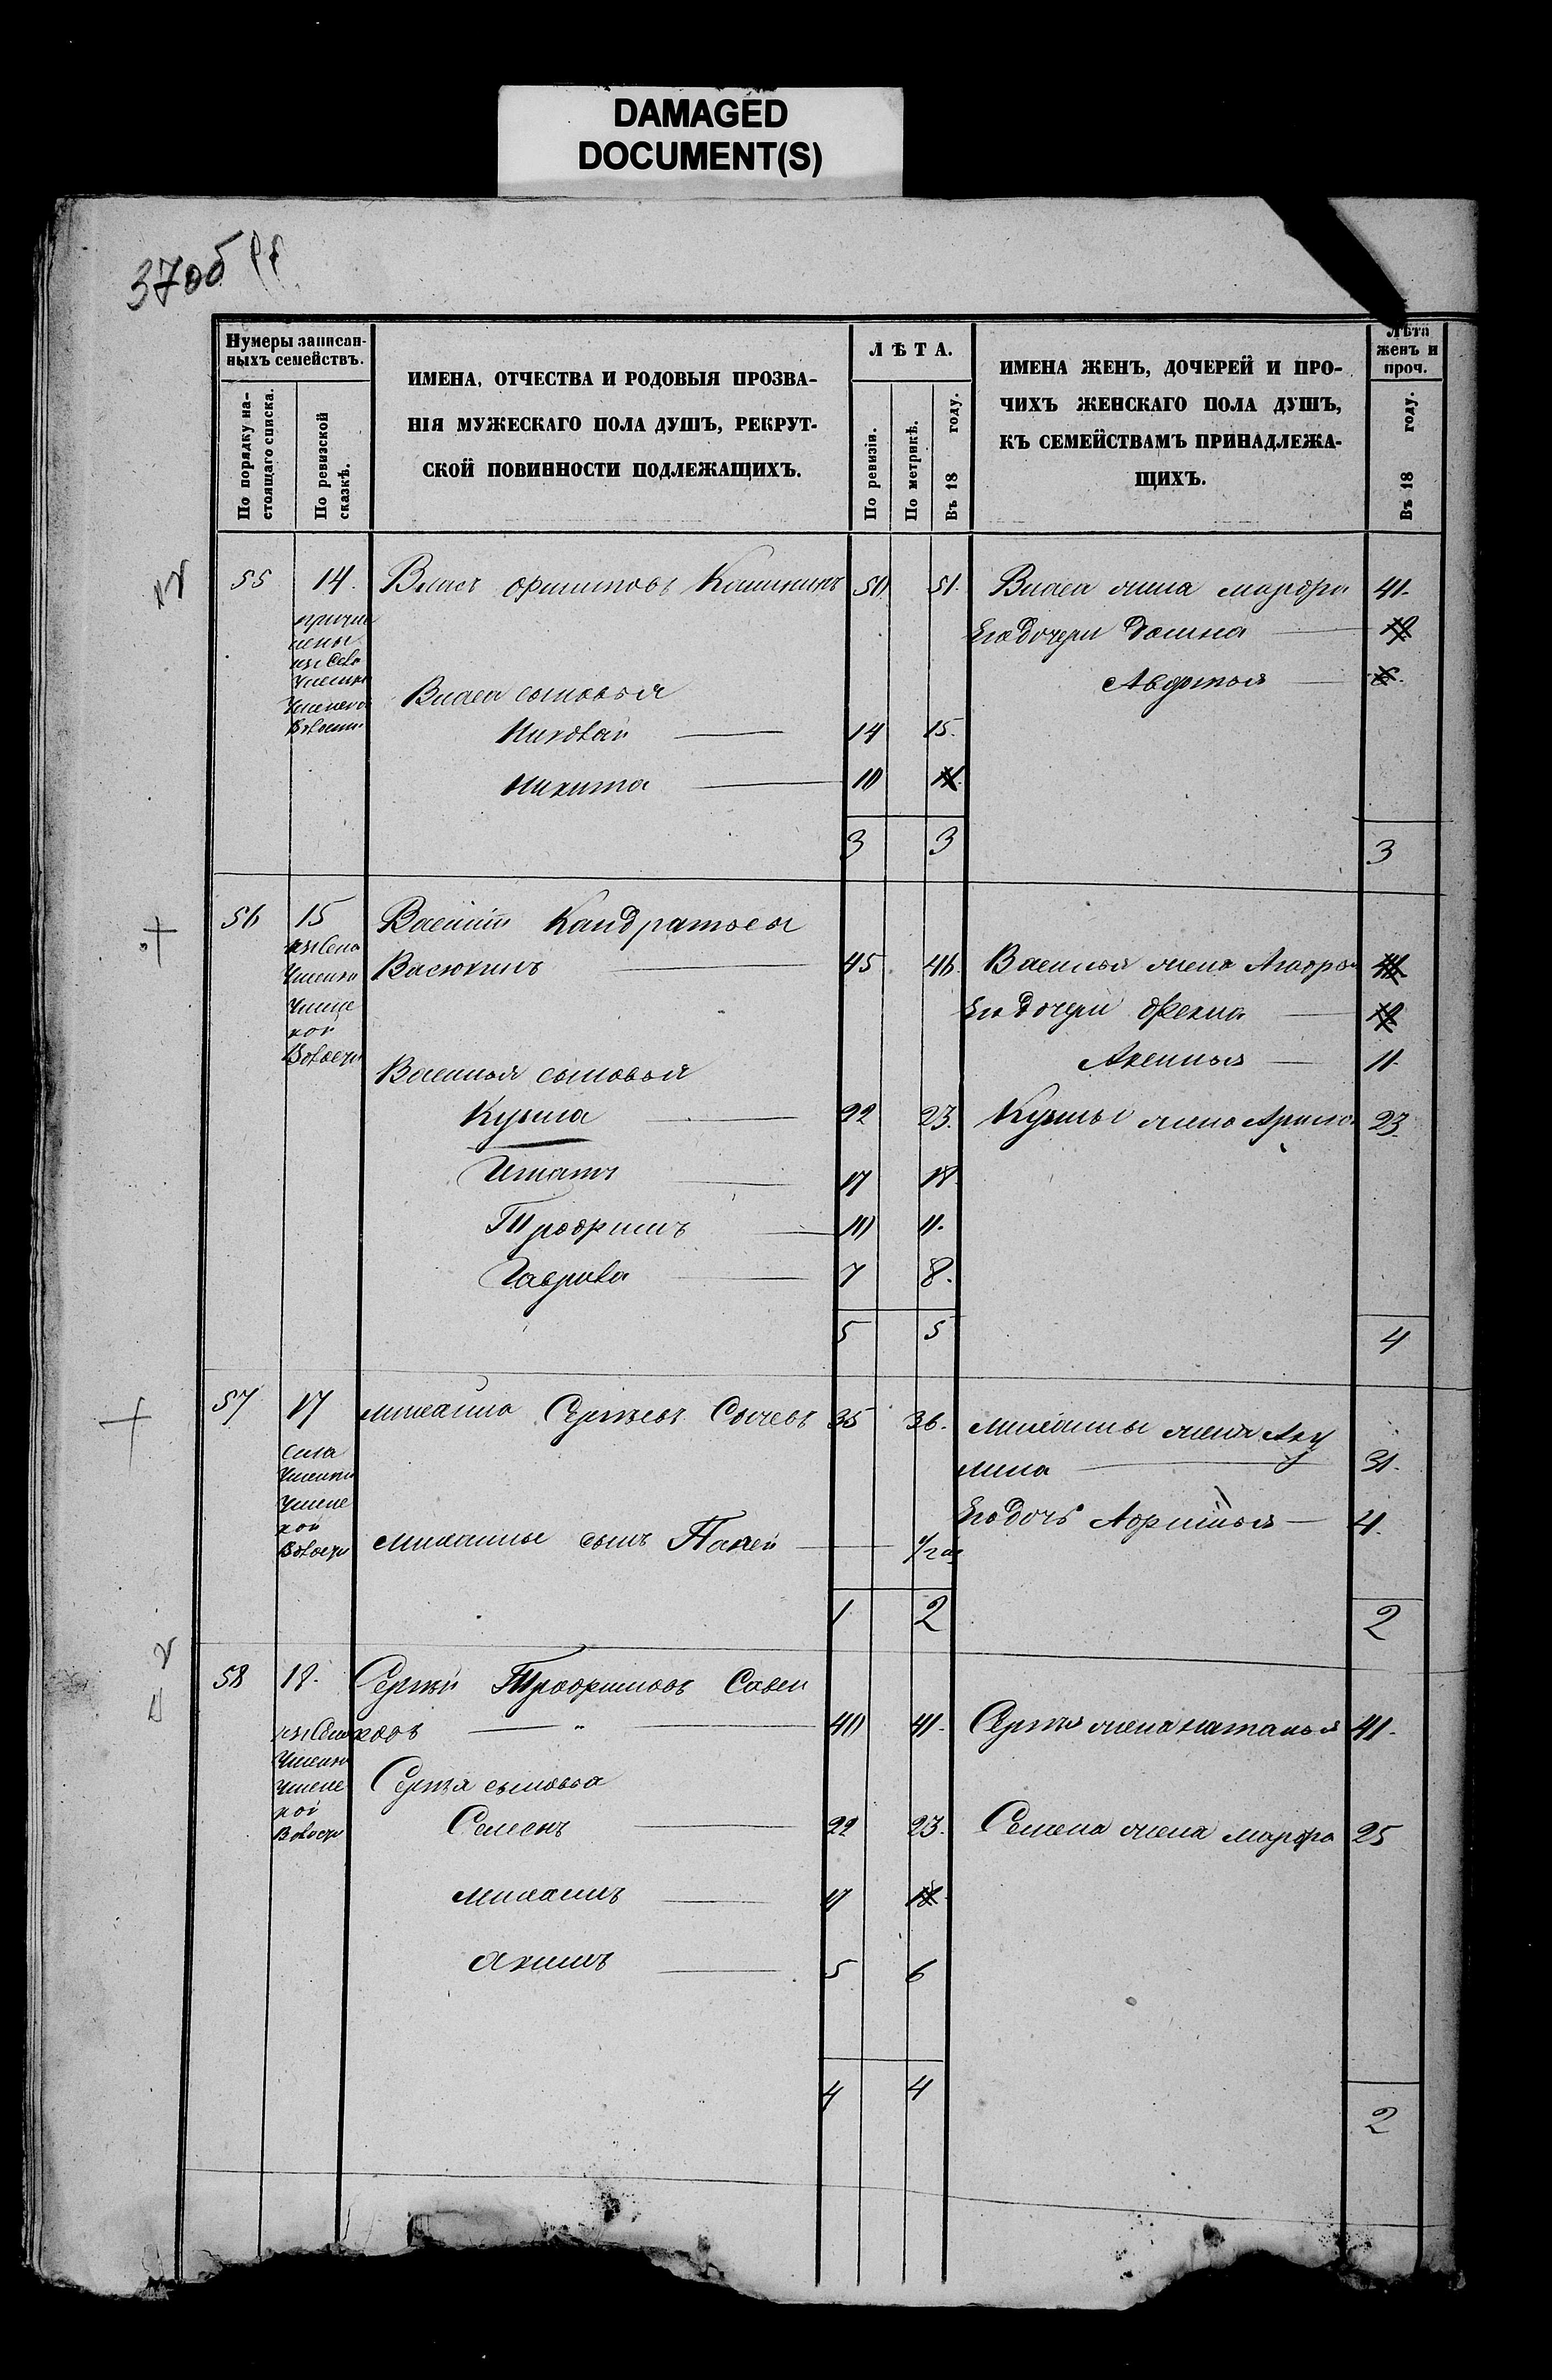 DAMAGED
DOCUMENT(S)
37об
Нумеры записан-
ныхъ семействъ.
По порядку на-
стоящаго списка.
По ревизской
сказкѣ.
ИМЕНА, ОТЧЕСТВА И РОДОВЫЯ ПРОЗВА-
НІЯ МУЖЕСКАГО ПОЛА ДУШЪ, РЕКРУТ-
СКОЙ ПОВИННОСТИ ПОДЛЕЖАЩИХЪ.
ЛѢТА.
По ревизіи.
По метрикѣ.
Въ 18 году.
ИМЕНА ЖЕНЪ, ДОЧЕРЕЙ И ПРО-
ЧИХЪ ЖЕНСКАГО ПОЛА ДУШЪ,
КЪ СЕМЕЙСТВАМЪ ПРИНАДЛЕЖА-
ЩИХЪ.
Лѣта
женъ и
проч.
Въ 18 году.
55 14. Власъ 50 51. Власа жена марфа 41.
Его дочери
Авдотья
Власа сыновья
Николай 14 15.
Никита 10
3 3 3
56 15 Васил Кандратьевъ
изъ села
Васюкинъ 45 46. Василья жена
Его дочери Фекла
Волости
Аксинья 11.
Василья сыновья
Кузьма 22 23. Кузьмы жена 23.
Игнатъ 17 18.
Трофимъ 10 11.
Гаврила 7 8.
5 5 4
57 17 михаила Сергѣевъ Сычевъ 35 36. михаилы жена Аку
лина 31.
села
кой
Волости
Его дочь 4.
михаилы сынъ 1/2
1 2 2
58 18. Сергѣй Трофимовъ Савен
ковъ 40 41. Сергѣя жена наталья 41.
изъ села
кой
Волости
Сергѣя сыновья
Семенъ 22 23. Семена жена марфа 25
михаилъ 17 18
Якимъ 5 6
4 4 2